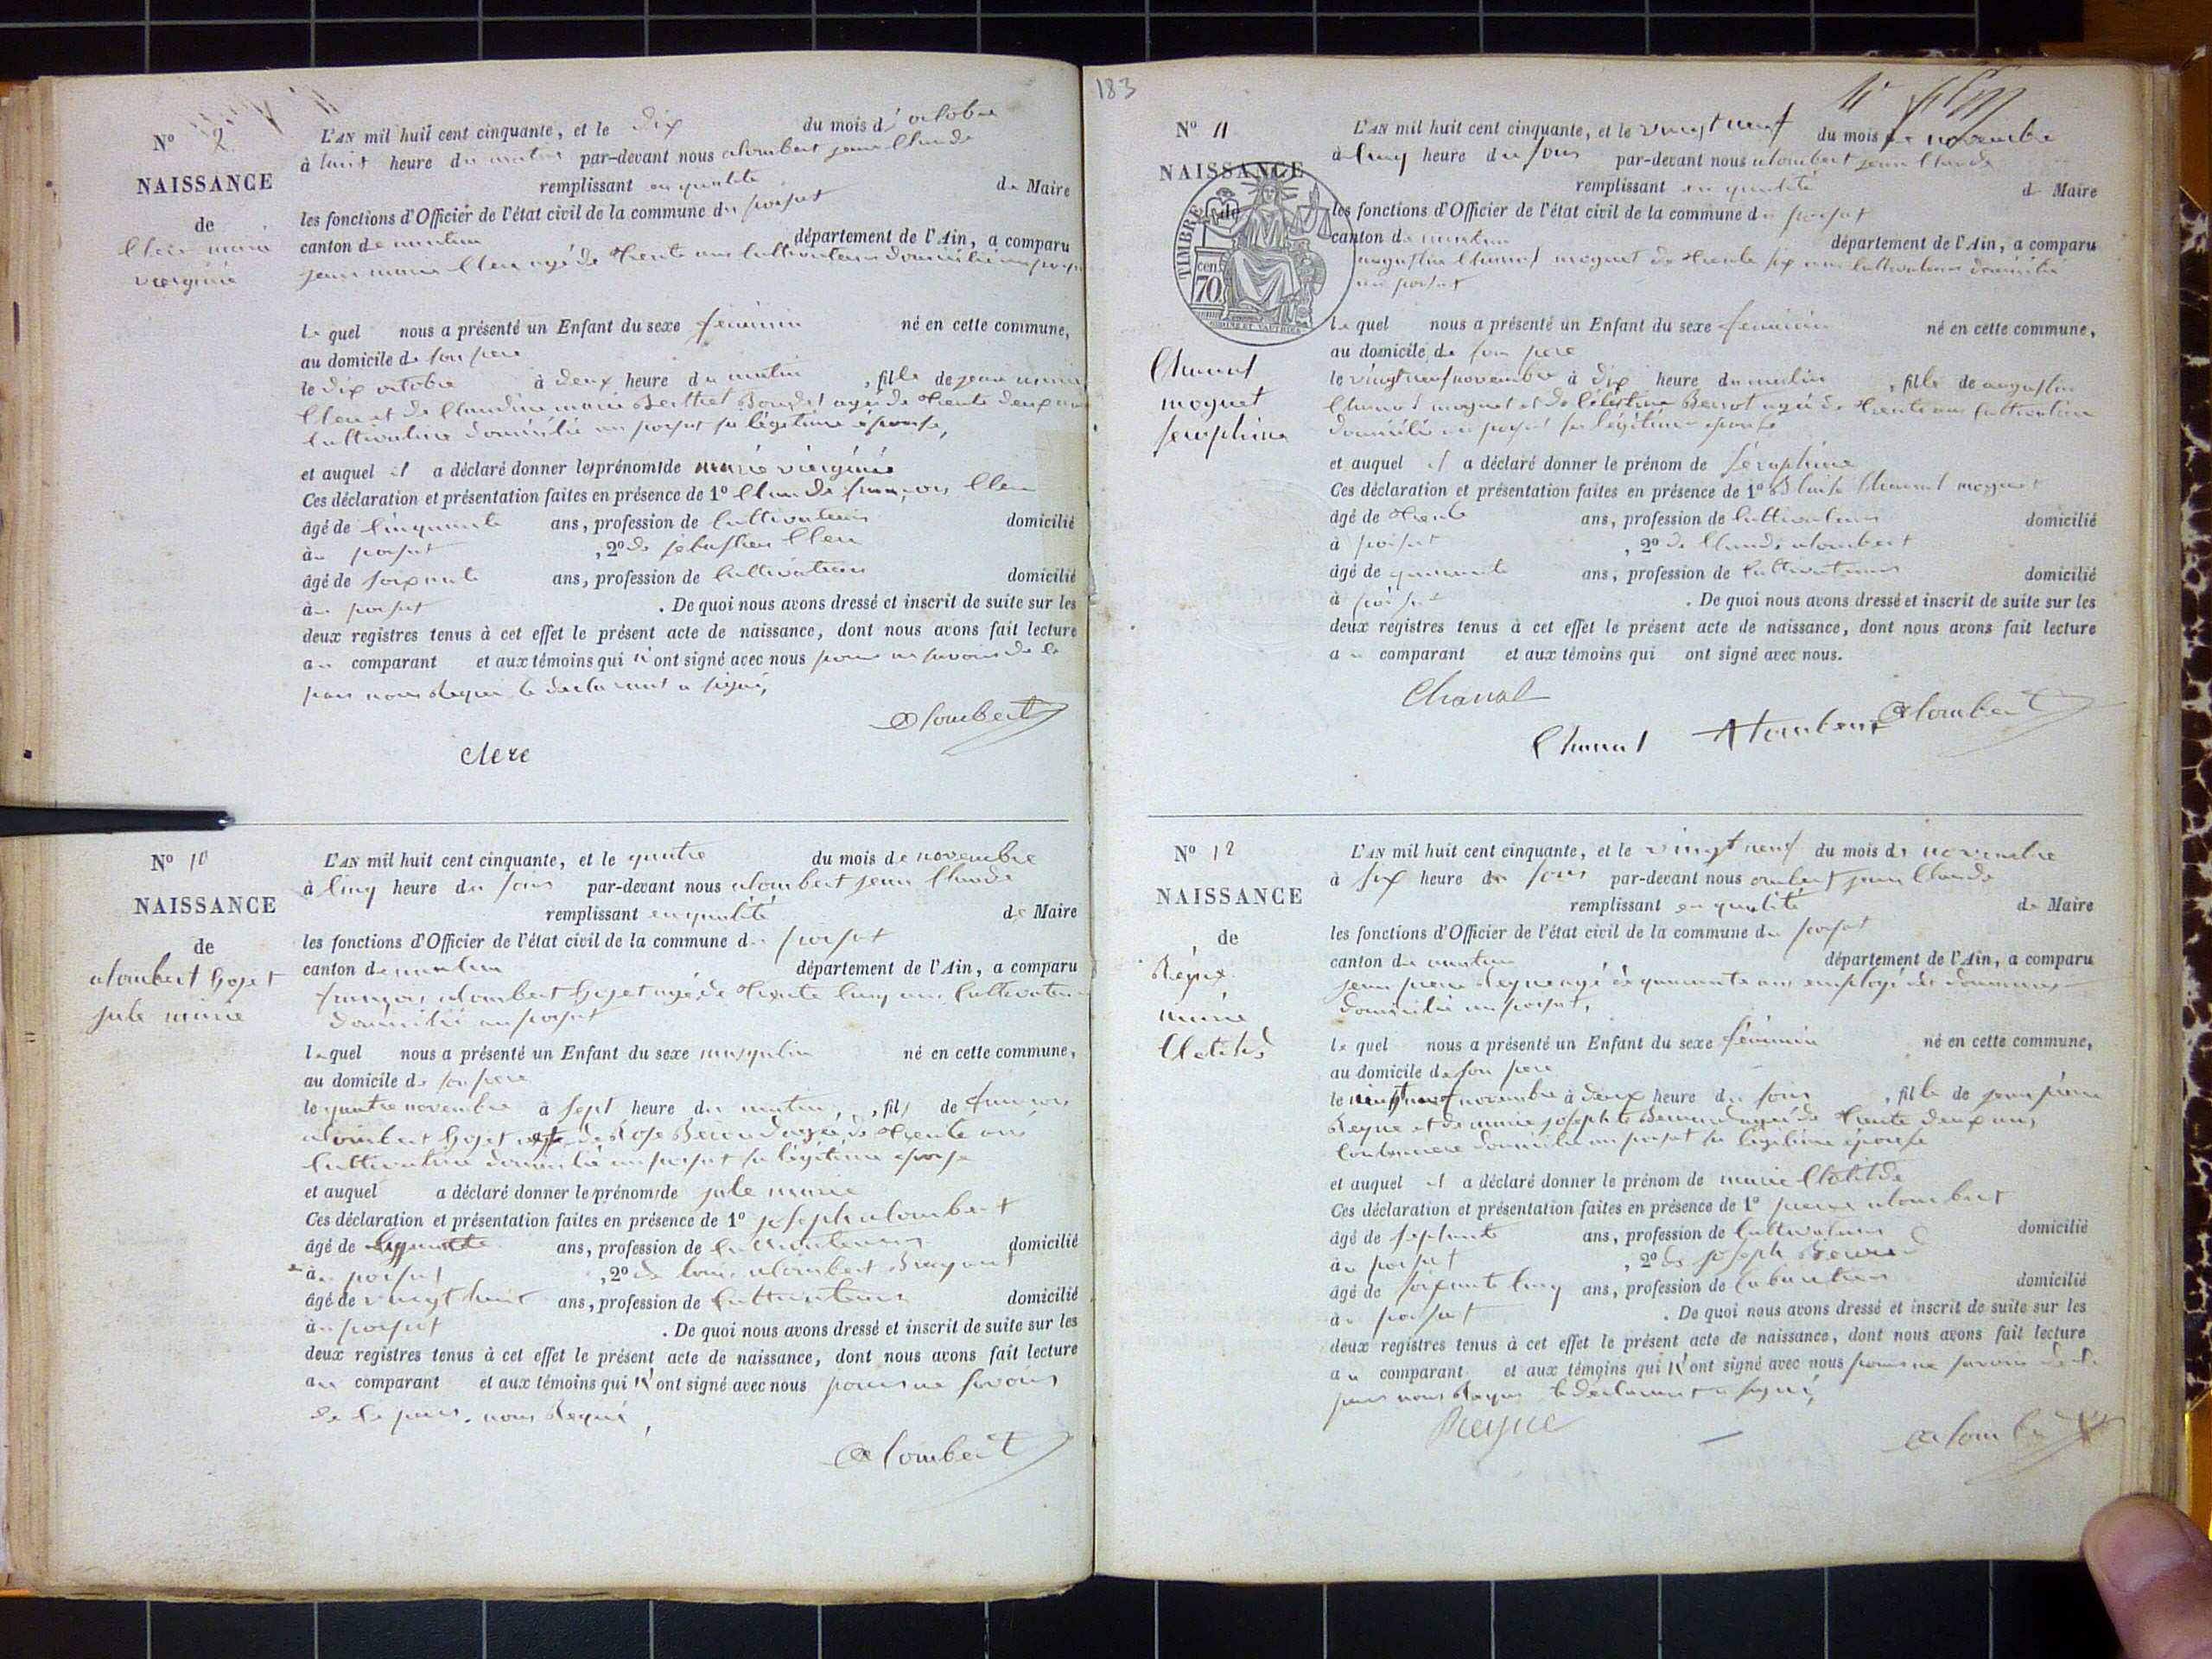 N° 2
NAISSANCE
de
Clerc marie
virginie
L'AN mil huit cent cinquante, et le dix du mois d' octobre
à huit heure du matin par-devant nous alombert jean Claude
remplissant en qualité de Maire
les fonctions d'Officier de l'état civil de la commune du poisat
canton de nantua département de l'Ain, a comparu
jean marie Clerc agé de trente ans Cultivateur domicilié au poisat
le quel nous a présenté un Enfant du sexe feminin né en cette commune,
au domicile de son pere
le dix octobre à deux heure du matin , fille de jean marie
Clerc et de Claudine marie Berthet agée de trente deux ans
Cultivatrice domicilié au poisat sa légitime épouse,
et auquel il a déclaré donner les prénoms de marie virginie
Ces déclaration et présentation faites en présence de 1° Claude françois Clerc
âgé de Cinquante ans, profession de Cultivateur domicilié
au poisat , 2° de sebastien Clerc
âgé de soixante ans, profession de Cultivateur domicilié
au poisat . De quoi nous avons dressé et inscrit de suite sur les
deux registres tenus à cet effet le présent acte de naissance, dont nous avons fait lecture
au comparant et aux témoins qui n'ont signé avec nous pour ne savoir de ce
par nous Requi le declarant a signé,
alombert
clerc
N° 10
NAISSANCE
de
alombert goget
jule marie
L'AN mil huit cent cinquante, et le quatre du mois de novembre
à Cinq heure du soir par-devant nous alombert jean Claude
remplissant en qualité de Maire
les fonctions d'Officier de l'état civil de la commune du poisat
canton de nantua département de l'Ain, a comparu
françois alombert goget agé de trente Cinq ans Cultivateur
domicilié au poisat
lequel nous a présenté un Enfant du sexe masqulin né en cette commune,
au domicile de son pere
le quatre novembre à sept heure du matin, , fils de françois
alombert goget et de Rose agée de trente ans
Cultivatrice domicilié au poisat sa légitime epouse
et auquel a déclaré donner le prénoms de jule marie
Ces déclaration et présentation faites en présence de 1° joseph alombert
âgé de ans, profession de Cultivateur domicilié
au poisat , 2° de louis alombert
âgé de vingt huit ans, profession de Cultivateur domicilié
au poisat . De quoi nous avons dressé et inscrit de suite sur les
deux registres tenus à cet effet le présent acte de naissance, dont nous avons fait lecture
au comparant et aux témoins qui n'ont signé avec nous pour ne savoir
de ce par nous Requi,
alombert
183
N° 11
NAISSANCE
de
TIMBRE
cen. 70
Chanal
moguet
seraphine
L'AN mil huit cent cinquante, et le vingt neuf du mois de novembre
à Cinq heure du soir par-devant nous alombert jean Claude
remplissant en qualité de Maire
les fonctions d'Officier de l'état civil de la commune du poisat
canton de nantua département de l'Ain, a comparu
augustin Chanal moguet de trente six ans Cultivateur domicilié
au poisat
le quel nous a présenté un Enfant du sexe feminin né en cette commune,
au domicile de son pere
le vingt neuf novembre à dix heure du matin , fille de augustin
Chanal moguet et de Célestine agée de trente ans Cultivatrice
domicilié au poisat sa légitime epouse
et auquel il a déclaré donner le prénom de Séraphine
Ces déclaration et présentation faites en présence de 1° Blaise Chanal moguet
âgé de trente ans, profession de Cultivateur domicilié
à poisat , 2° de Claude alombert
âgé de quarante ans, profession de Cultivateur domicilié
à poisat . De quoi nous avons dressé et inscrit de suite sur les
deux registres tenus à cet effet le présent acte de naissance, dont nous avons fait lecture
au comparant et aux témoins qui ont signé avec nous.
Chanal
Chanal Alombert alombert
N° 12
NAISSANCE
de
Reyne
marie
Clotilde
L'AN mil huit cent cinquante, et le vingt neuf du mois de novembre
à six heure du soir par-devant nous jean Claude
remplissant en qualité de Maire
les fonctions d'Officier de l'état civil de la commune du poisat
canton de nantua département de l'Ain, a comparu
jean pierre Reyne agé de quarante ans employé des douannes
domicilié au poisat,
le quel nous a présenté un Enfant du sexe féminin né en cette commune,
au domicile de son pere
le vingt neuf novembre à deux heure du soir , fille de jean pierre
Reyne et de marie josephte agée de trente deux ans,
Couturiere domicilié au poisat sa légitime épouse
et auquel il a déclaré donner le prénom de marie Clotilde
Ces déclaration et présentation faites en présence de 1° pierre alombert
âgé de septante ans, profession de Cultivateur domicilié
au poisat , 2° de joseph
âgé de soixante Cinq ans, profession de domicilié
au poisat . De quoi nous avons dressé et inscrit de suite sur les
deux registres tenus à cet effet le présent acte de naissance, dont nous avons fait lecture
au comparant et aux témoins qui n'ont signé avec nous pour ne savoir de ce
par nous Requi le declarant a signé,
Reyne alombert